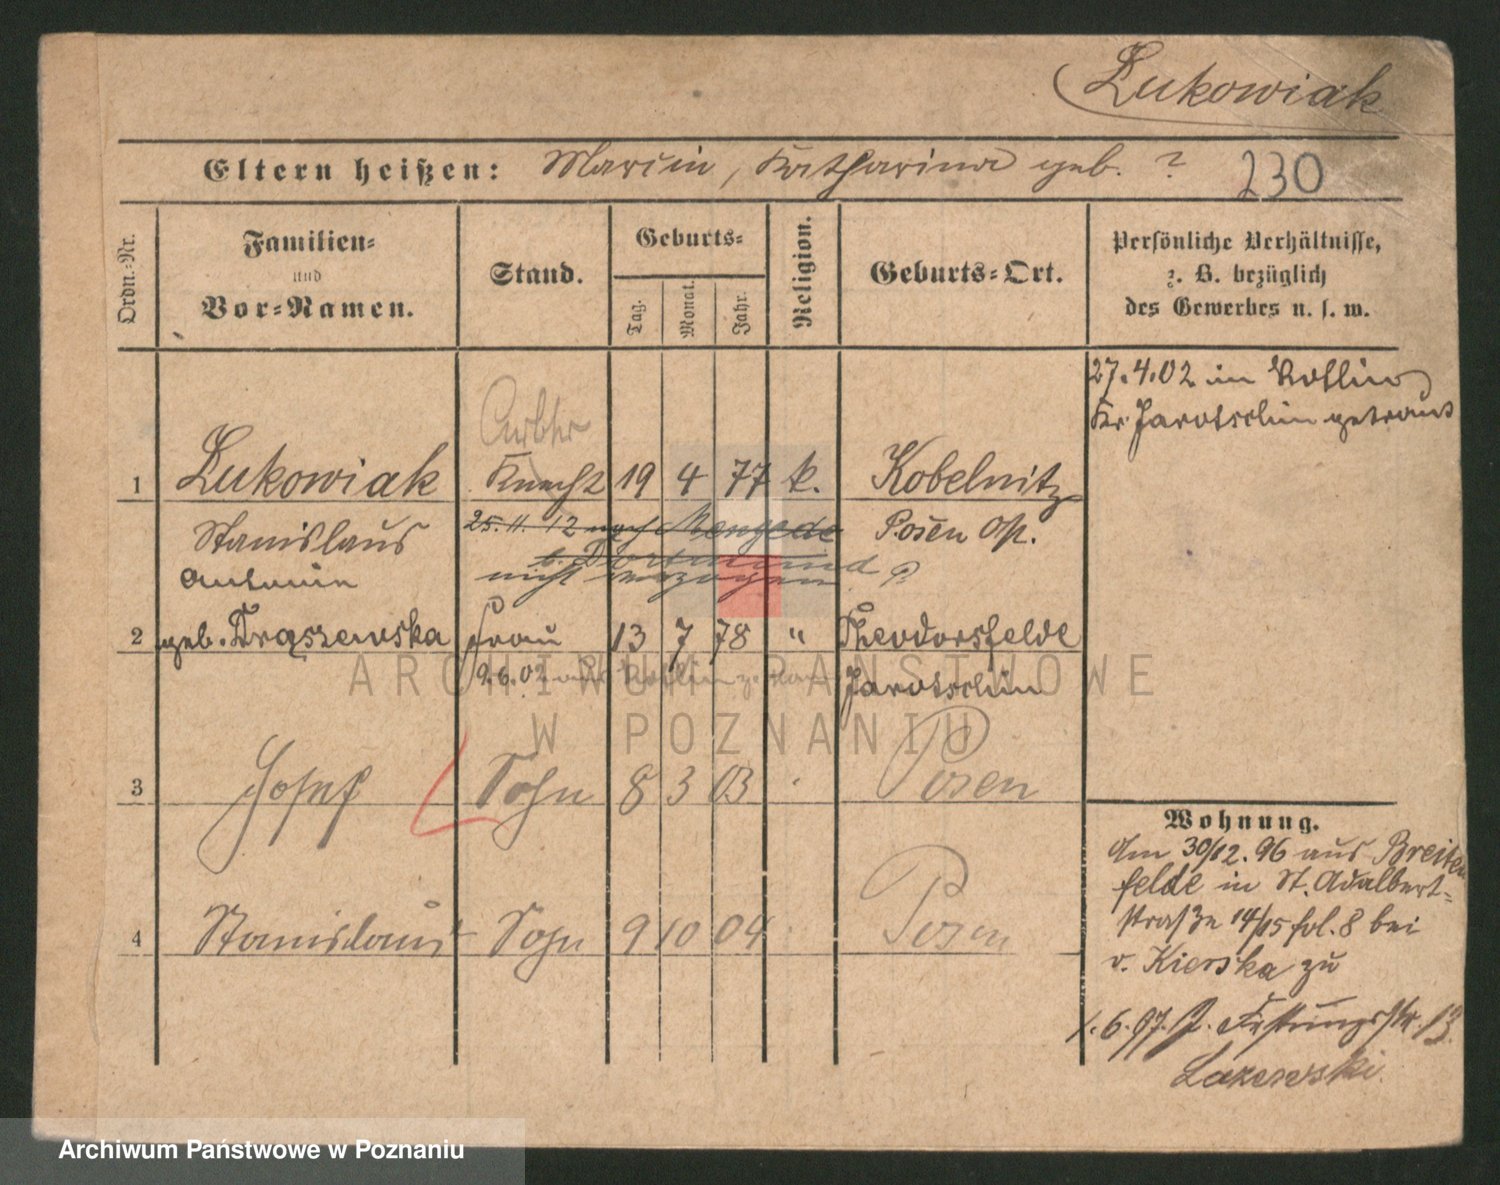 Lukowiak
Eltern heißen: Marcin, Katharina geb. ? 230
Ordn.-Nr.
Familien-
und
Vor-Namen.
Stand.
Geburts-
Tag.
Monat.
Jahr.
Religion.
Geburts-Ort.
Persönliche Verhältnisse,
z. B. bezüglich
des Gewerbes u. s. w.
27.4.02 in Kotlin
Kr. Jarotschin getraut
Arbtr
1 Lukowiak Knecht 19 4 77 k. Kobelnitz
Stanislaus
25.11.12 nach Mengede
b. Dortmund
nicht verzogen
Posen Ost.
Antonie
2 geb. Draszewska Frau 13 7 78 " Theodorsfelde
9.6.02 aus Kotlin
Jarotschin
3 Josef Sohn 8 3 03 Posen
4 Stanislaus Sohn 9 10 04 Posen
Wohnung.
Am 30/12.96 aus Breiten
felde in St. Adalbert-
straße 14/15 fol. 8 bei
v. Kierska zu
1.6.97. Festungsstr. 13
ARCHIWUM PAŃSTWOWE
W POZNANIU
Archiwum Państwowe w Poznaniu